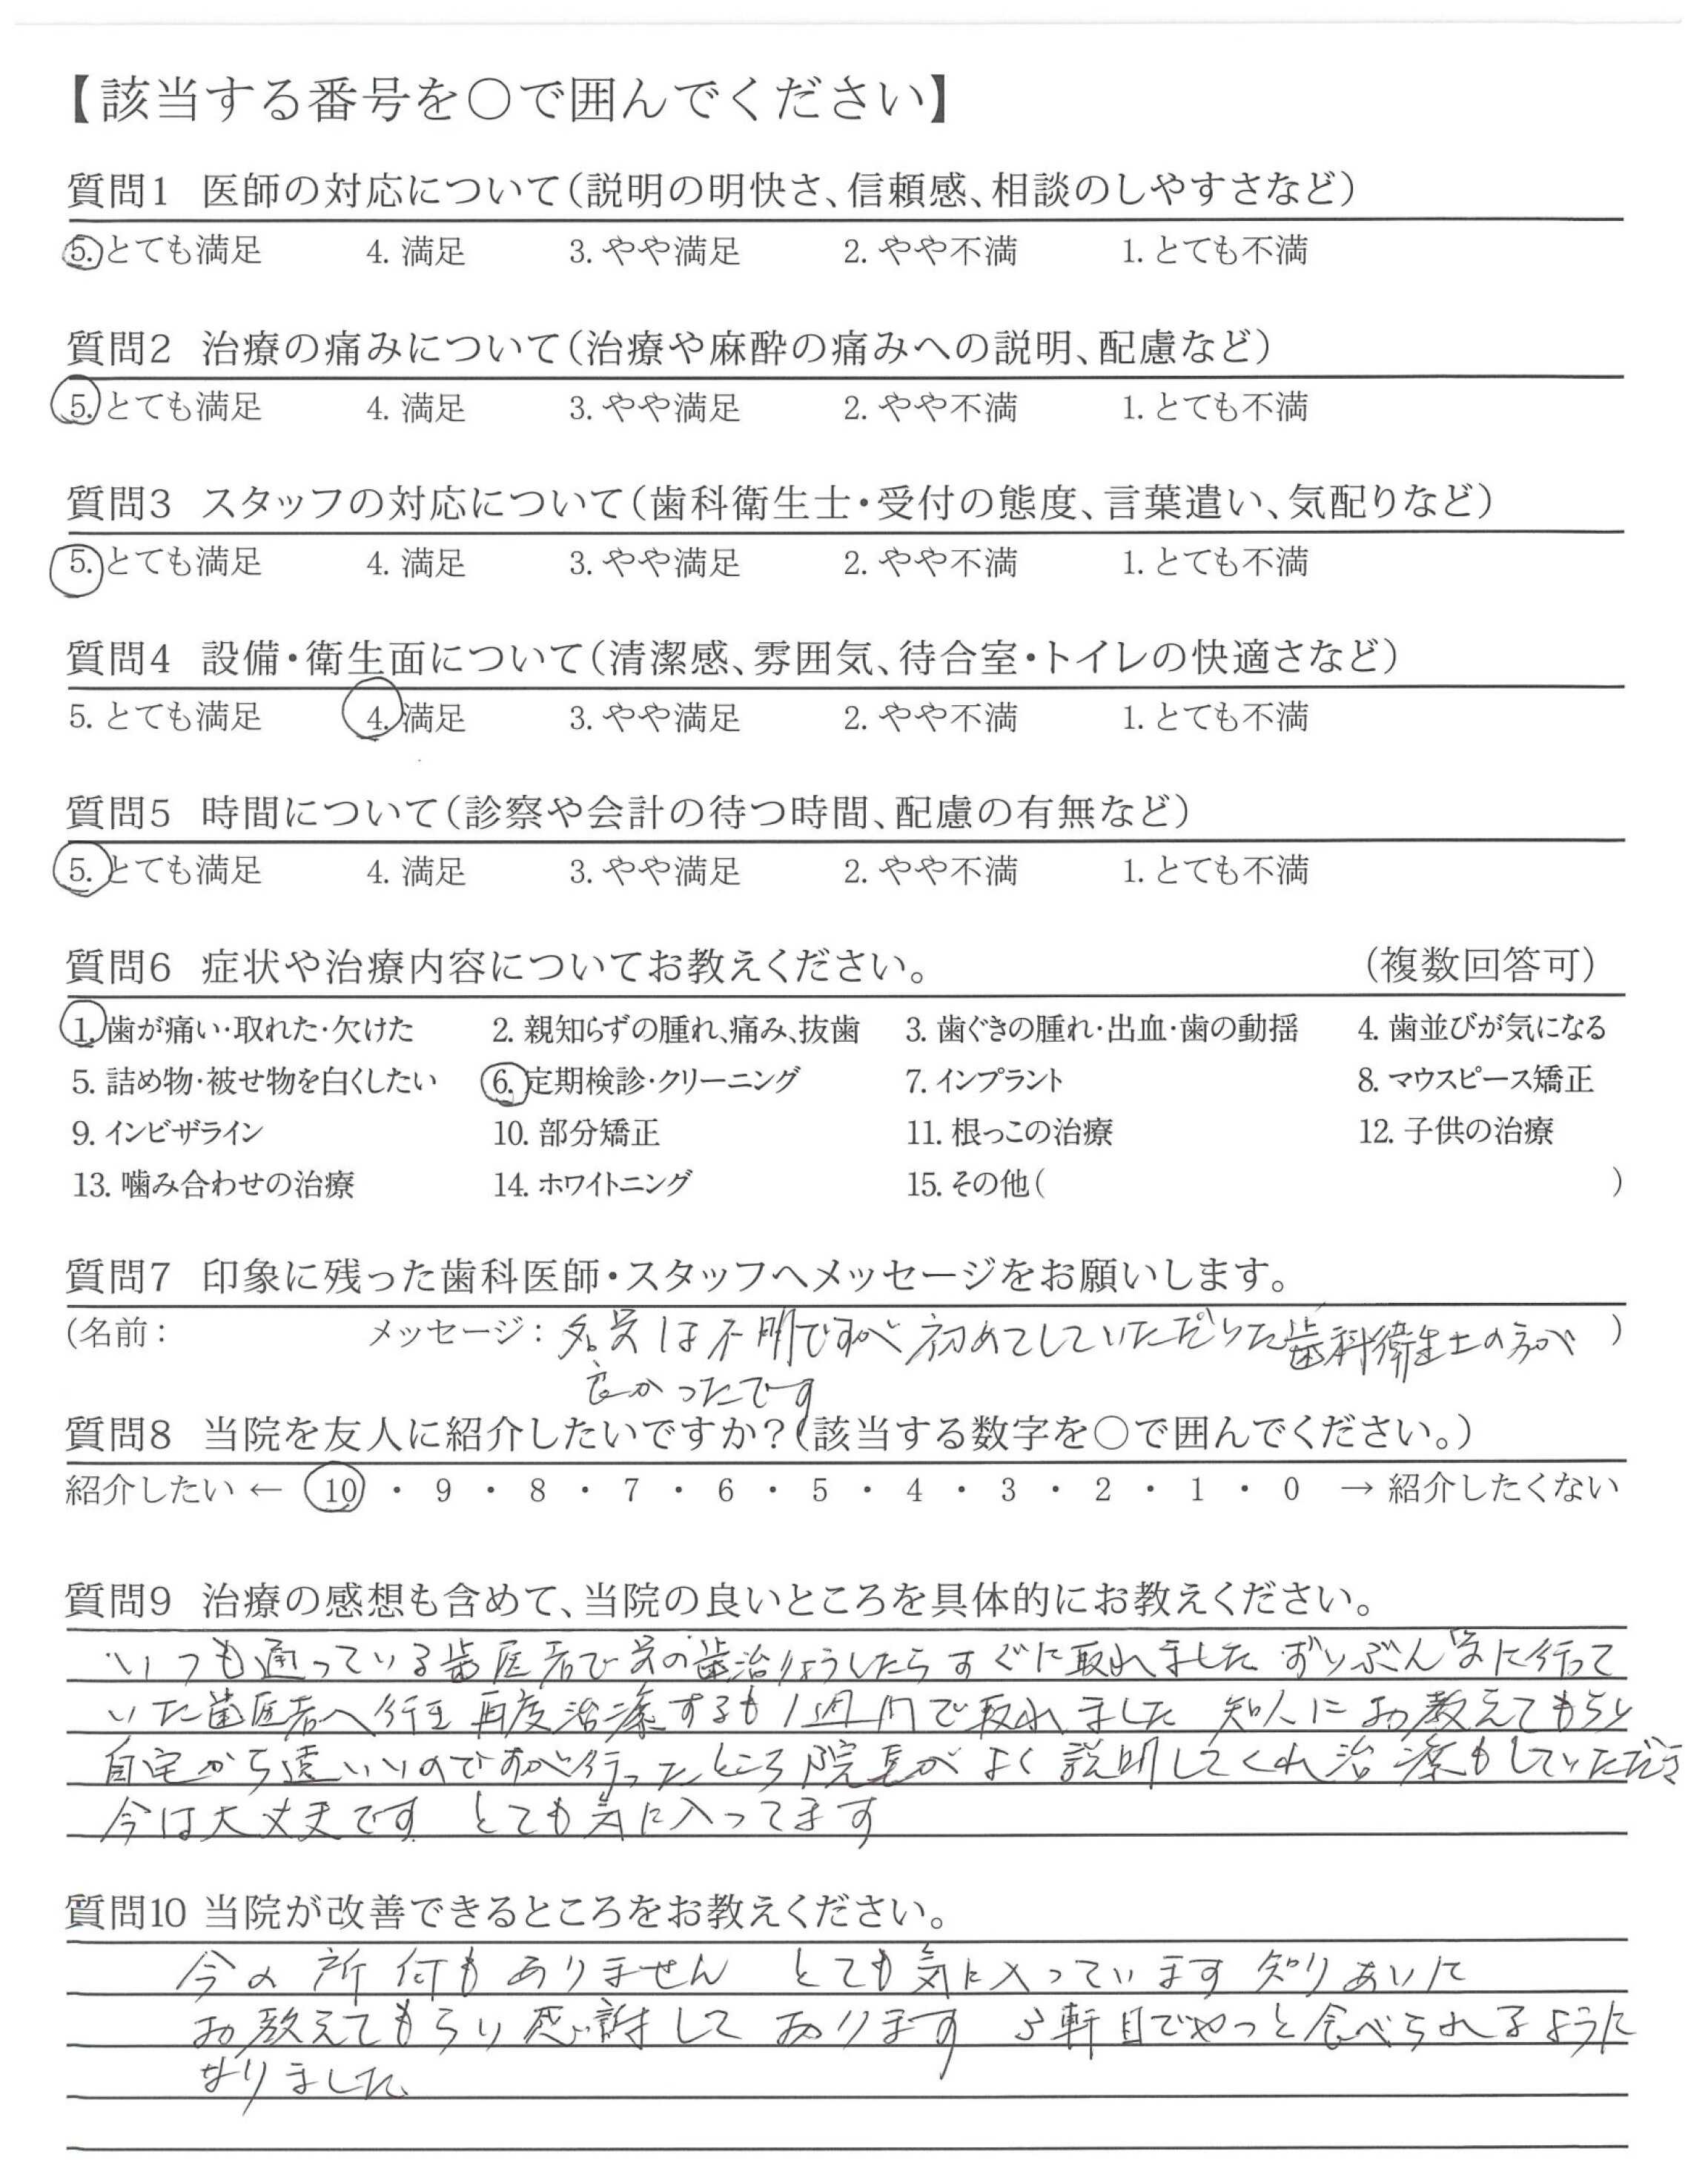 【該当する番号を○で囲んでください】
質問1 医師の対応について(説明の明快さ、信頼感、相談のしやすさなど)
5. とても満足 4. 満足 3. やや満足 2. やや不満 1. とても不満
質問2 治療の痛みについて(治療や麻酔の痛みへの説明、配慮など)
5. とても満足 4. 満足 3. やや満足 2. やや不満 1. とても不満
質問3 スタッフの対応について(歯科衛生士・受付の態度、言葉遣い、気配りなど)
5. とても満足 4. 満足 3. やや満足 2. やや不満 1. とても不満
質問4 設備・衛生面について(清潔感、雰囲気、待合室・トイレの快適さなど)
5. とても満足 4. 満足 3. やや満足 2. やや不満 1. とても不満
質問5 時間について(診察や会計の待つ時間、配慮の有無など)
5. とても満足 4. 満足 3. やや満足 2. やや不満 1. とても不満
質問6 症状や治療内容についてお教えください。 (複数回答可)
1. 歯が痛い・取れた・欠けた 2. 親知らずの腫れ、痛み、抜歯 3. 歯ぐきの腫れ・出血・歯の動揺 4. 歯並びが気になる
5. 詰め物・被せ物を白くしたい 6. 定期検診・クリーニング 7. インプラント 8. マウスピース矯正
9. インビザライン 10. 部分矯正 11. 根っこの治療 12. 子供の治療
13. 噛み合わせの治療 14. ホワイトニング 15. その他( )
質問7 印象に残った歯科医師・スタッフへメッセージをお願いします。
(名前: メッセージ: 名前は不明ですが 初めてしていただいた歯科衛生士の方が )
良かったです
質問8 当院を友人に紹介したいですか?(該当する数字を○で囲んでください。)
紹介したい ← 10 ・ 9 ・ 8 ・ 7 ・ 6 ・ 5 ・ 4 ・ 3 ・ 2 ・ 1 ・ 0 → 紹介したくない
質問9 治療の感想も含めて、当院の良いところを具体的にお教えください。
いつも通っている歯医者で前の歯治りょうしたらすぐに取れました ずいぶん前に行って
いた歯医者へ行き 再度治療するも1週間で取れました 知人にお教えてもらい
自宅から遠いいのですが行ったところ 院長がよく説明してくれ治療もしていただき
今は大丈夫です とても気に入ってます
質問10 当院が改善できるところをお教えください。
今の所 何もありません とても気に入っています 知りあいに
お教えてもらい 感謝しております 3軒目でやっと食べられるように
なりました